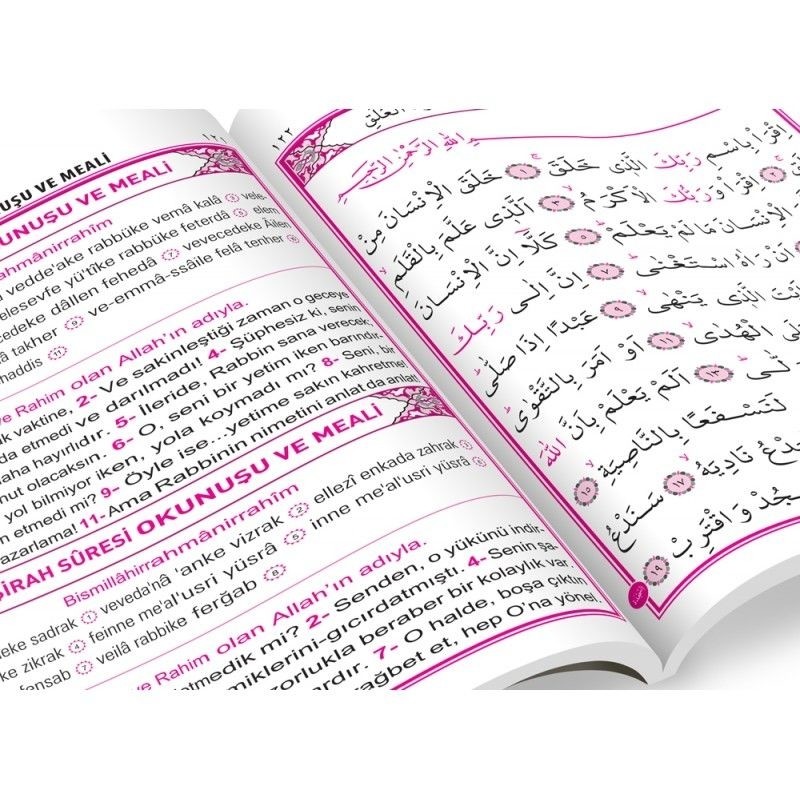 ١٢١
UŞU VE MEALİ
UNUŞU VE MEALİ
ahmânirrahîm
vedde'ake rabbüke vemâ kalâ ③ vele-
elesevfe yü'tîke rabbüke feterdâ ⑤ elem
cedeke dâllen fehedâ ⑦ vevecedeke Âilen
takher ⑨ ve-emmâ-ssâile felâ tenher ⑩
haddis ⑪
ve Rahim olan Allah'ın adıyla.
k vaktine, 2- Ve sakinleştiği zaman o geceye
da etmedi ve darılmadı. 4- Şüphesiz ki, senin
aha hayırlıdır. 5- İleride, Rabbin sana verecek;
nut olacaksın. 6- O, seni bir yetim iken barındır-
yol bilmiyor iken, yola koymadı mı? 8- Seni, bir
n etmedi mi? 9- Öyle ise...yetime sakın kahretme!
azarlama! 11- Ama Rabbinin nimetini anlat da anlat!
ŞİRAH SÛRESİ OKUNUŞU VE MEALİ
Bismillâhirrahmânirrahîm
eke sadrak ① veveda'nâ 'anke vizrak ② ellezî enkada zahrak ③
ke zikrak ④ feinne me'al'usri yüsrâ ⑤ inne me'al'usri yüsrâ ⑥
fensab ⑦ veilâ rabbike ferğab ⑧
ve Rahim olan Allah'ın adıyla.
etmedik mi? 2- Senden, o yükünü indir-
miklerini-gıcırdatmıştı. 4- Senin şa-
zorlukla beraber bir kolaylık var.
ardır. 7- O halde, boşa çıktın
ağbet et, hep O'na yönel.
١٢٢
العلق
الله الرحمن الرحيم
اِقْرَأْ بِاسْمِ رَبِّكَ الَّذِى خَلَقَ ﴿١﴾ خَلَقَ الْاِنْسَانَ مِنْ
﴿٢﴾ اِقْرَأْ وَرَبُّكَ الْاَكْرَمُ ﴿٣﴾ اَلَّذِى عَلَّمَ بِالْقَلَمِ
الْاِنْسَانَ مَا لَمْ يَعْلَمْ ﴿٥﴾ كَلَّا اِنَّ الْاِنْسَانَ
اَنْ رَاٰهُ اسْتَغْنٰى ﴿٧﴾ اِنَّ اِلٰى رَبِّكَ
الَّذِى يَنْهٰى ﴿٩﴾ عَبْدًا اِذَا صَلّٰى
الْهُدٰى ﴿١١﴾ اَوْ اَمَرَ بِالتَّقْوٰى
﴿١٣﴾ اَلَمْ يَعْلَمْ بِاَنَّ اللّٰهَ
لَنَسْفَعًا بِالنَّاصِيَةِ ﴿١٥﴾
نَادِيَهُ ﴿١٧﴾ سَنَدْعُ
وَاقْتَرِبْ ﴿١٩﴾